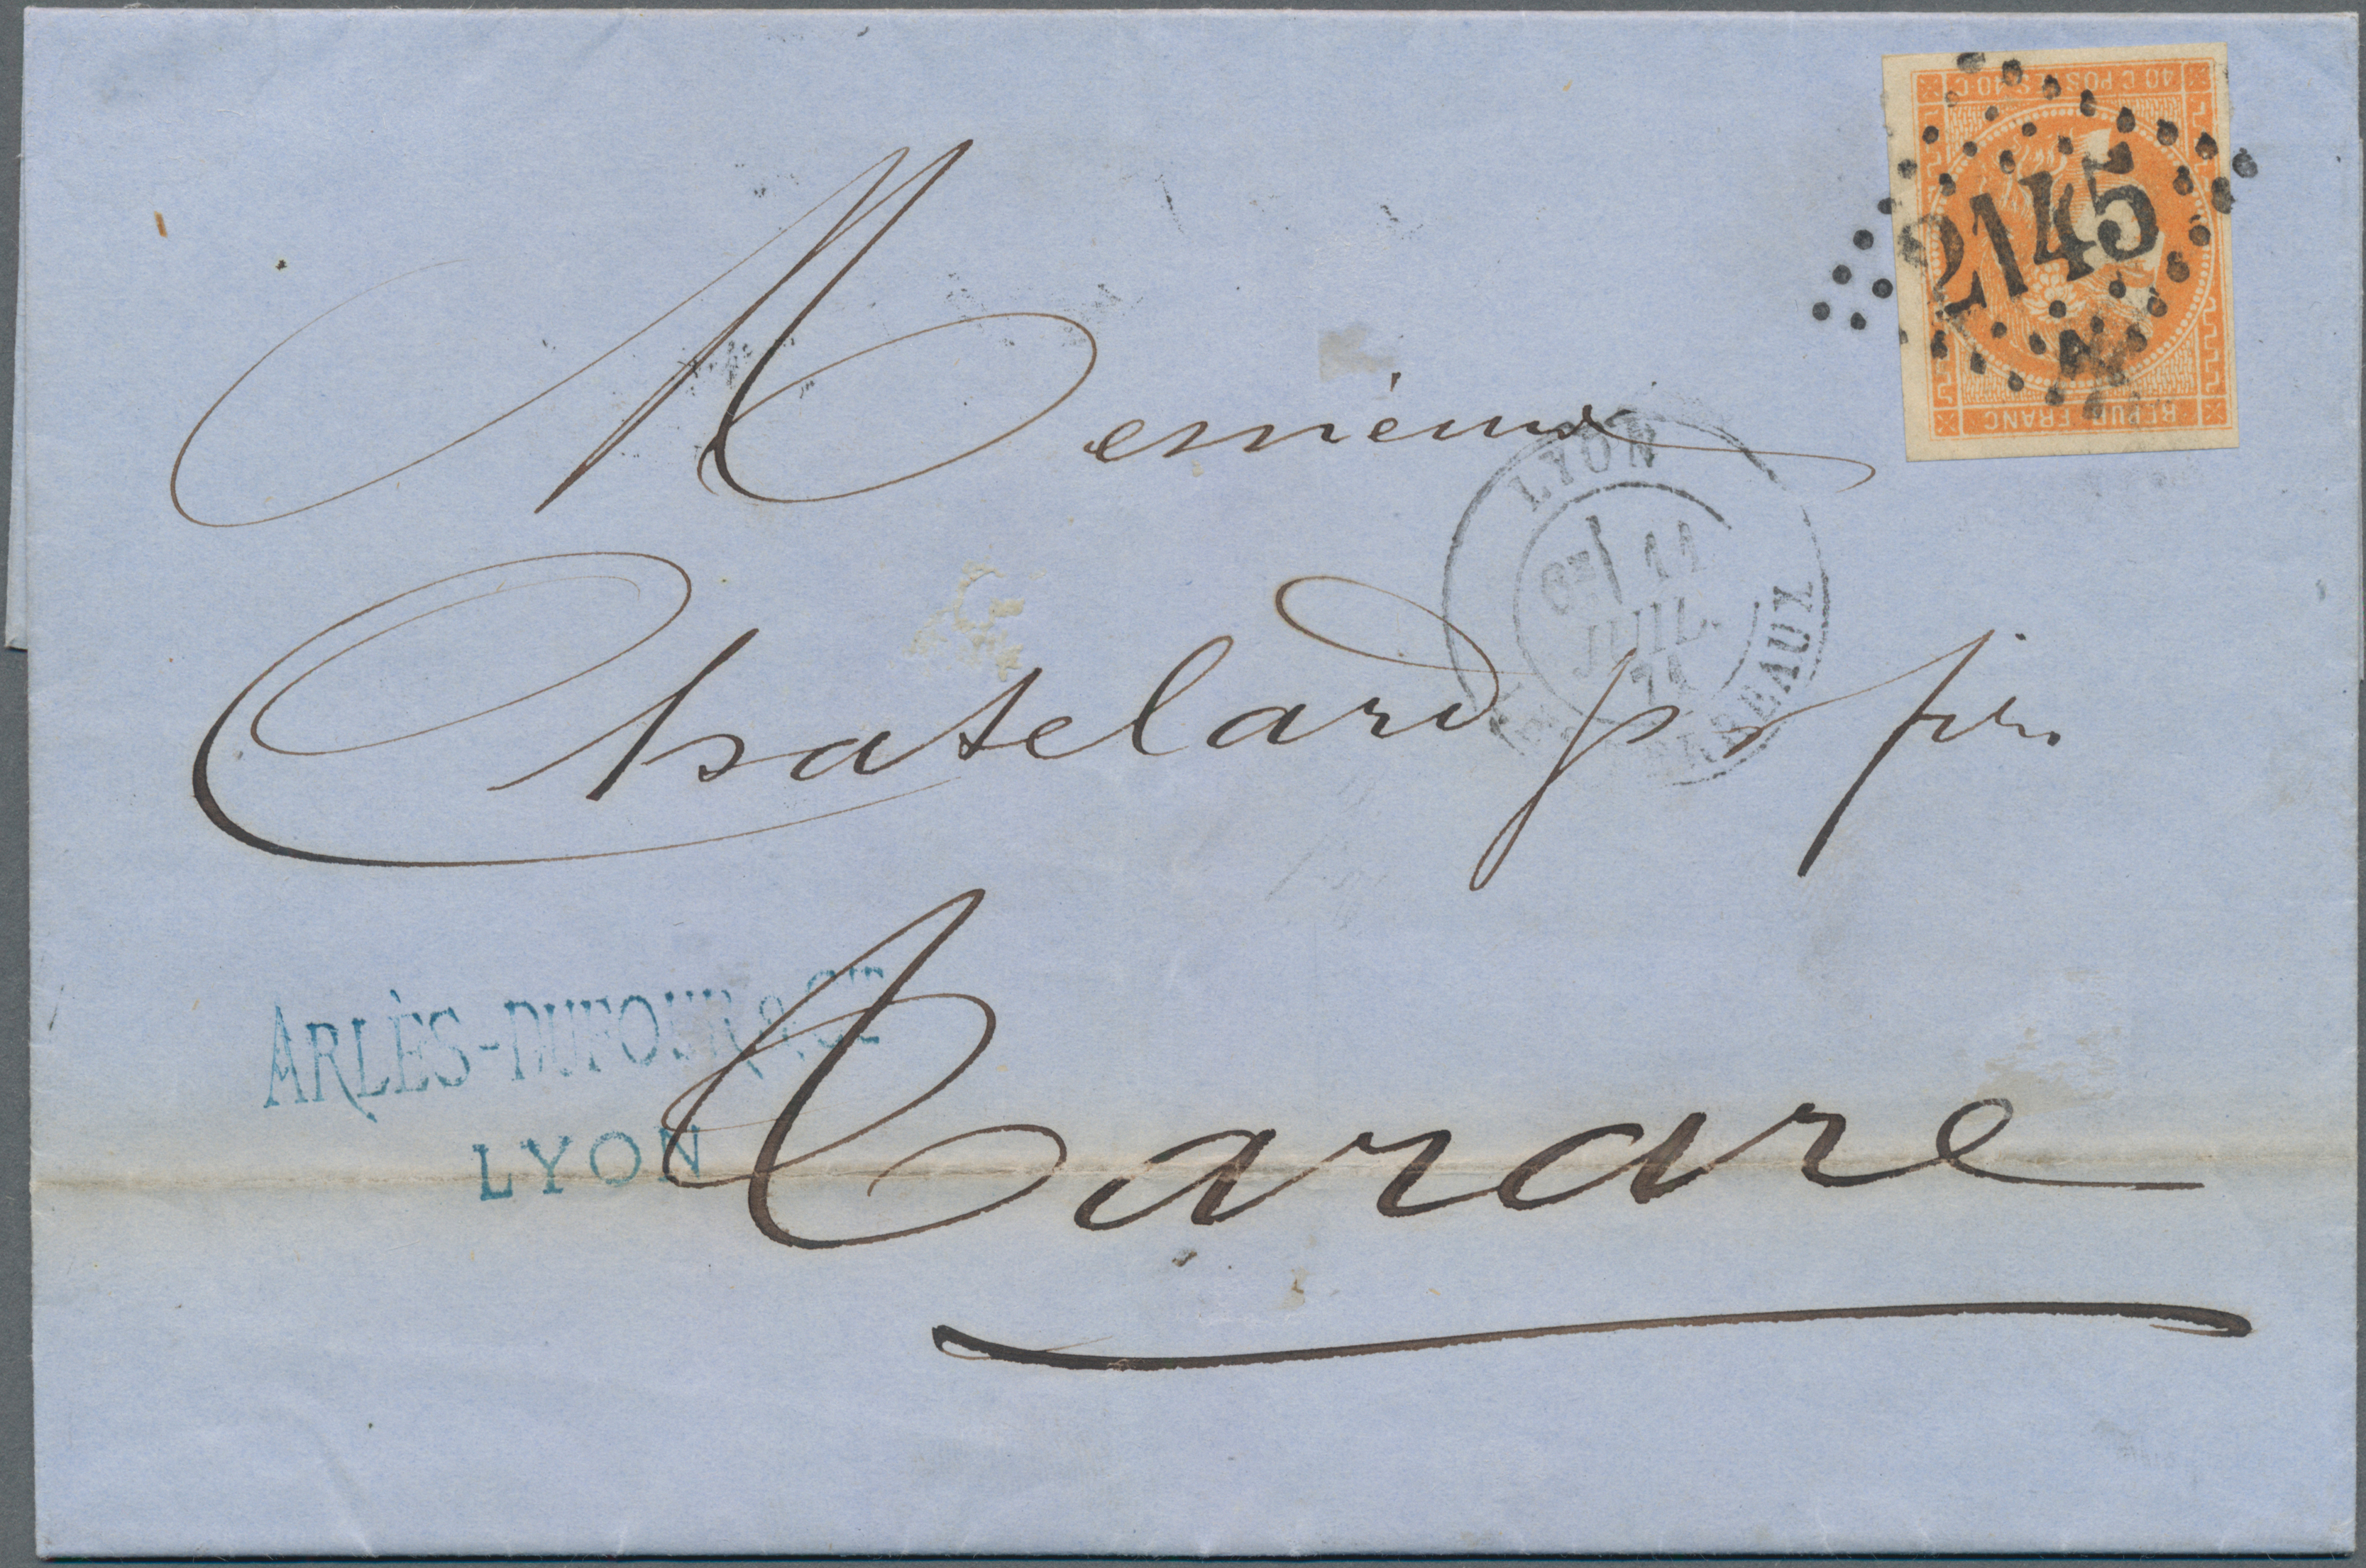 40 C POSTES 40 C
2145
REPUB FRANC
Messieurs
LYON
6E 11
JUIL.
71
LES TERREAUX
Chatelard p & fils.
ARLÈS-DUFOUR & CIE
LYON
Tarare